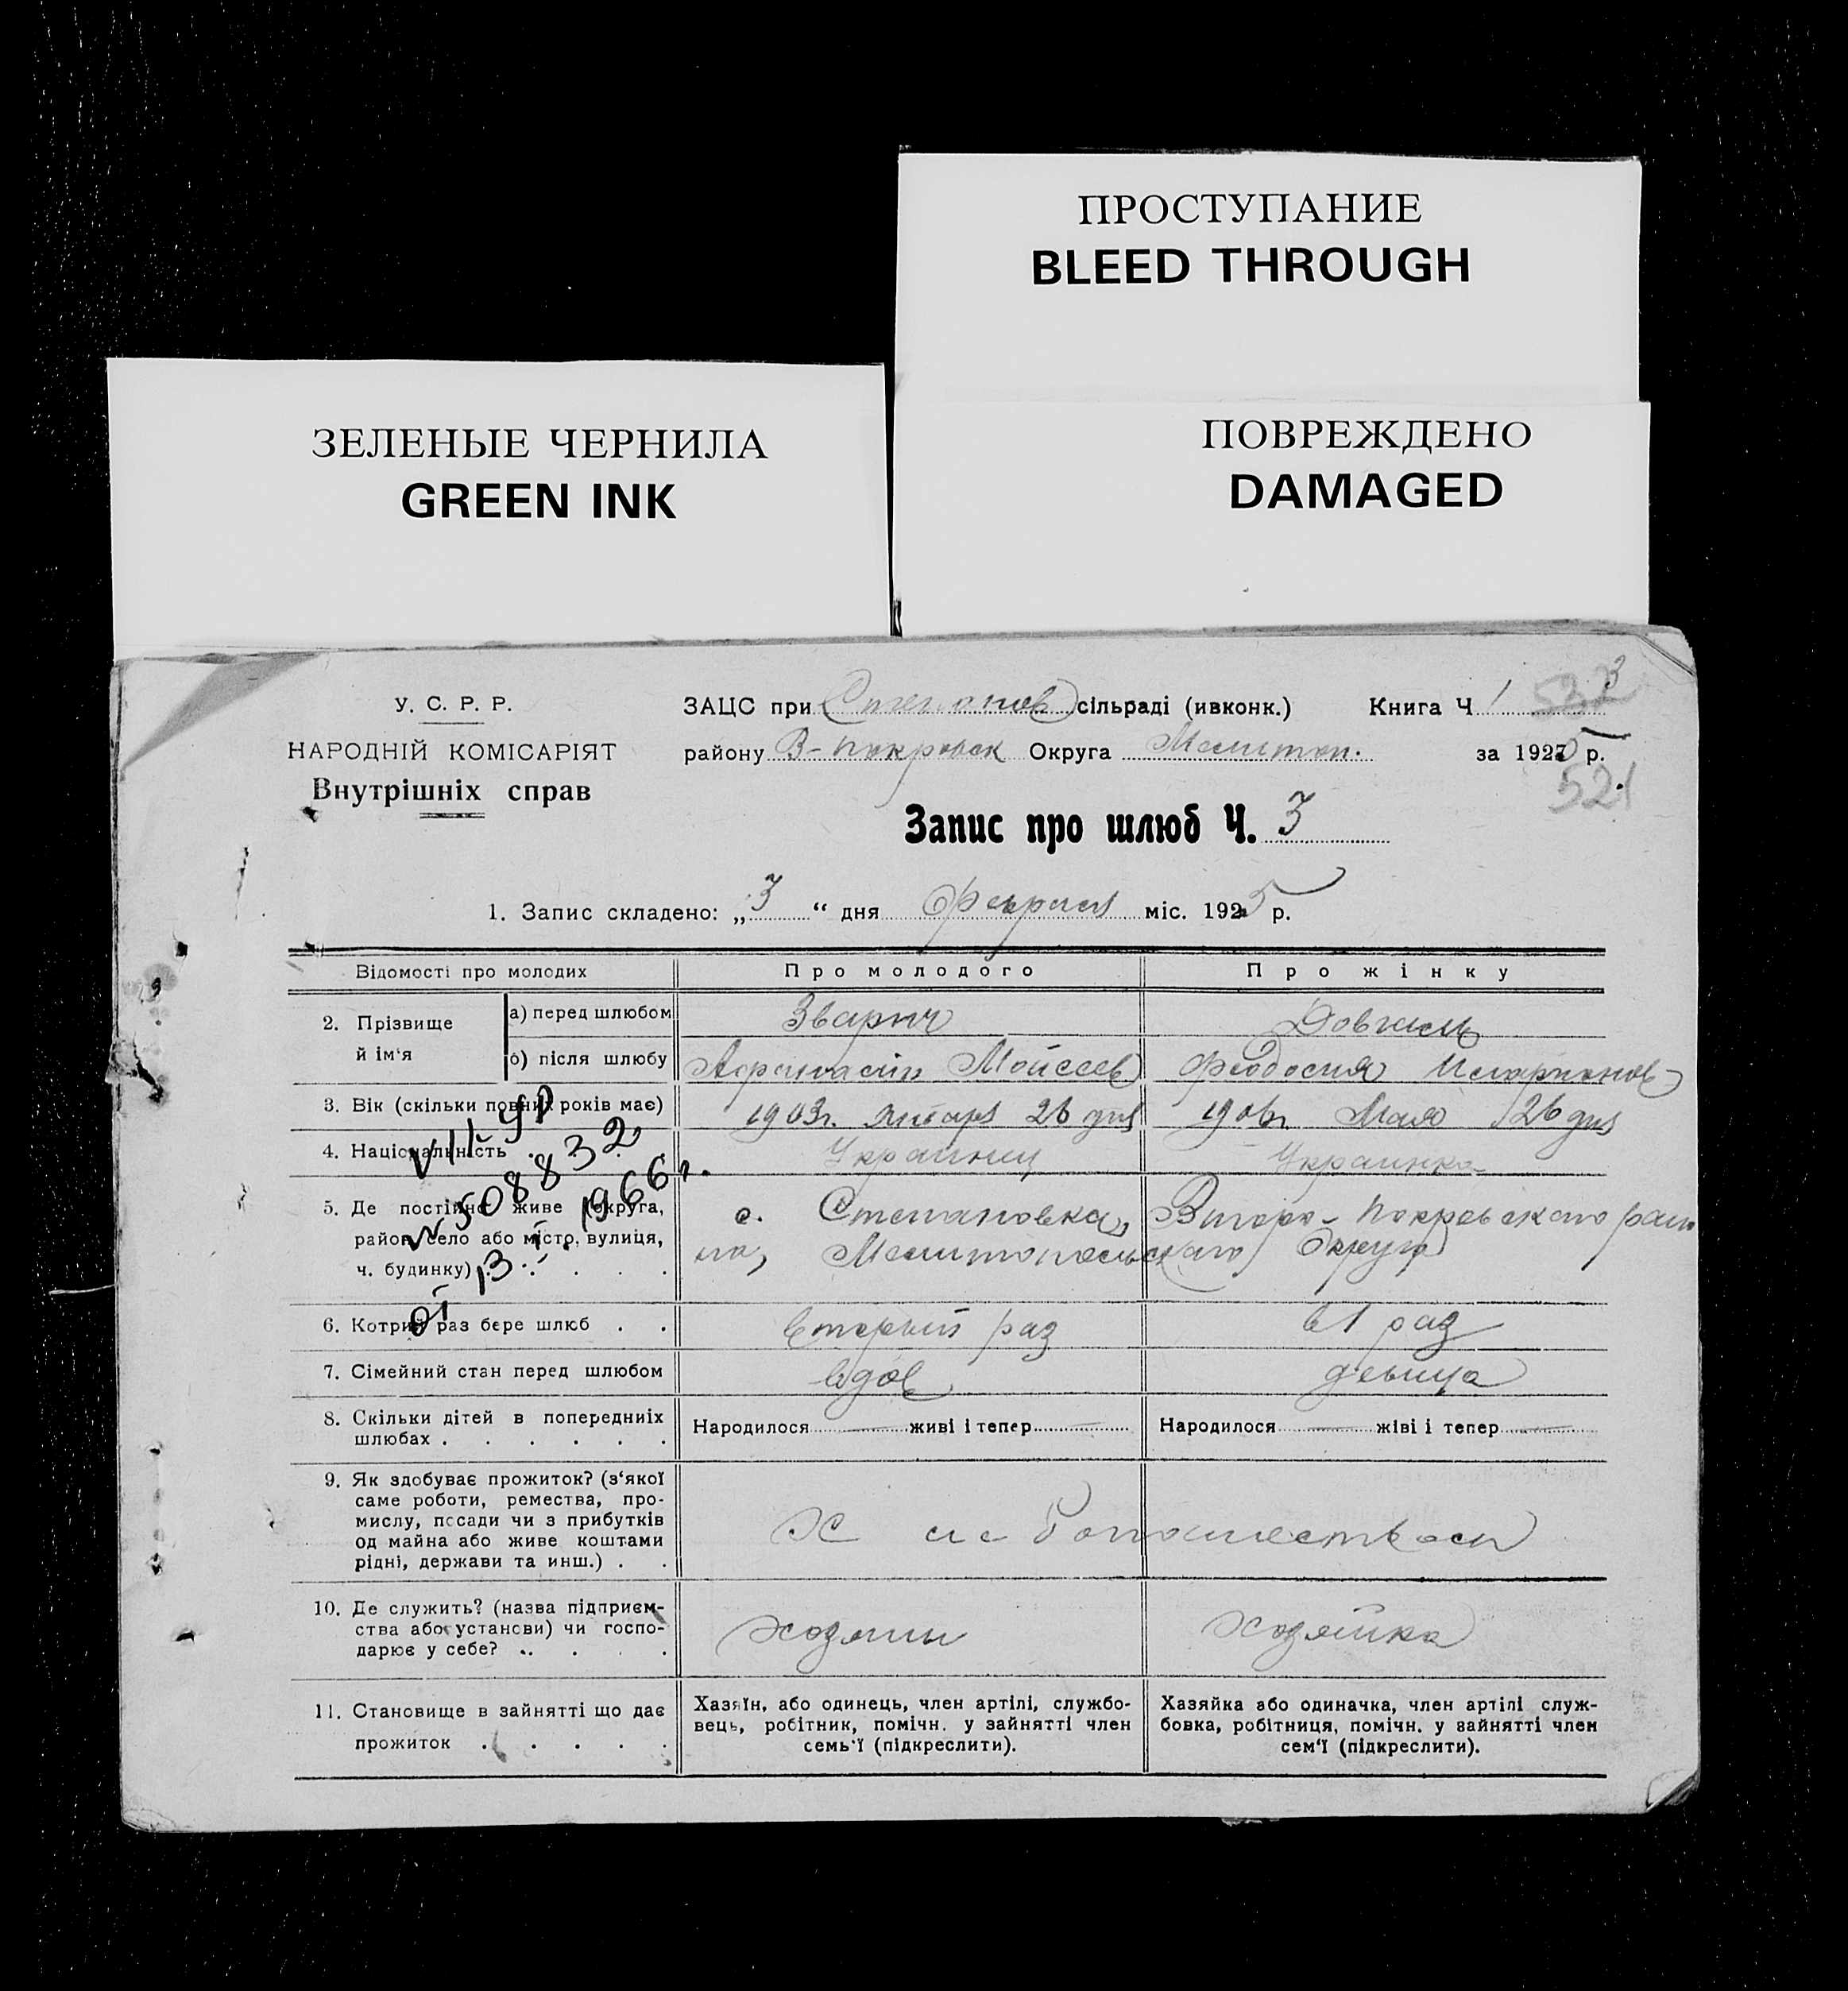 ПРОСТУПАНИЕ
BLEED THROUGH
ЗЕЛЕНЫЕ ЧЕРНИЛА
GREEN INK
ПОВРЕЖДЕНО
DAMAGED
3
У. С. Р. Р.
ЗАЦС при Степанов сільраді (ивконк.)
Книга Ч 1 532
НАРОДНІЙ КОМІСАРІЯТ
району В-Покровск Округа Мелитоп.
за 1925 р.
Внутрішніх справ
521
Запис про шлюб Ч. 3
1. Запис складено: „3“ дня Февраля міс. 1925 р.
Відомості про молодих
Про молодого
Про жінку
2. Прізвище й ім‘я
а) перед шлюбом
Зварич
Довгаль
б) після шлюбу
Афанасий Мойсеев
Феодосия Иларионов
3. Вік (скільки повних років має)
1903г. Январ 26 дня
1906г Мая 26 дня
4. Національність
Украинец
Украинка
5. Де постійно живе (округа,
район, село або місто, вулиця,
ч. будинку)
с. Степановка, Второ-Покровского райо
на, Мелитопольского Округа
VІІ ЯР
№ 5088832
от 13 1966г.
6. Котрий раз бере шлюб . .
вторый раз
в 1 раз
7. Сімейний стан перед шлюбом
вдов
девица
8. Скільки дітей в попередниіх
шлюбах . . . . . .
Народилося — живі і тепер —
Народилося — жіві і тепер —
9. Як здобуває прожиток? (з‘якої
саме роботи, ремества, про-
мислу, посади чи з прибутків
од майна або живе коштами
рідні, держави та инш.) . .
10. Де служить? (назва підприєм-
ства або установи) чи госпо-
дарює у себе? . . . . .
хозяин
хозяйка
11. Становище в зайнятті що дає
прожиток . . . . . .
Хазяїн, або одинець, член артілі, службо-
вець, робітник, помічн. у зайнятті член
семь‘ї (підкреслити).
Хазяйка або одиначка, член артілі служ-
бовка, робітниця, помічн. у зайнятті член
сем‘ї (підкреслити).